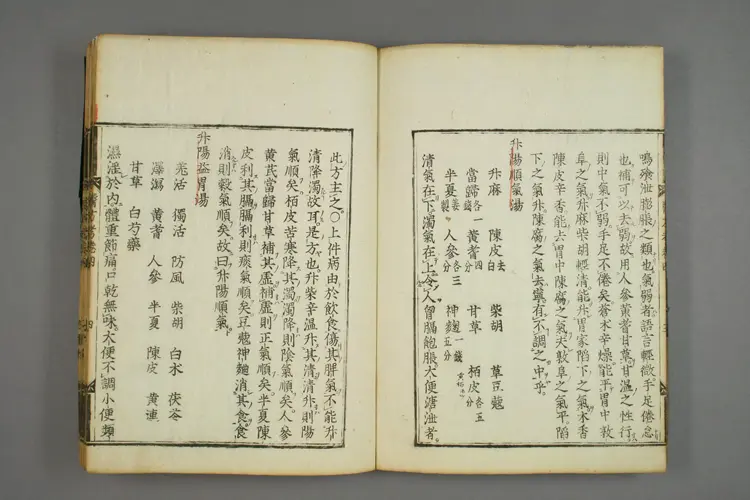 鳴飱泄膨脹之類也氣弱者語言輕微手足倦怠
也補可以去弱故用人參黃耆甘草甘溫之性行
則中氣不弱手足不倦矣蒼木辛燥能平胃中敦
阜之氣升麻柴胡輕清能升胃家陷下之氣木香
陳皮辛香能去胃中陳腐之氣夫敦阜之氣平陷
下之氣升陳腐之氣去寧有不調之中乎
升陽順氣湯
升麻 陳皮去白 柴胡 草豆蔻
當歸各一錢 黃耆四分 甘草 栢皮各五分
半夏姜製 人參各三分 神麴一錢五分
清氣在下濁氣在上令人胷膈飽脹大便溏泄者
此方主之〇上件病由於飲食傷其脾氣不能升
清降濁故耳是方也升柴辛溫升其清清升則陽
氣順矣栢皮苦寒降其濁濁降則陰氣順矣人參
黃芪當歸甘草補其虛補虛則正氣順矣半夏陳
皮利其膈膈利則痰氣順矣豆蔻神麯消其食食
消則穀氣順矣故曰升陽順氣
升陽益胃湯
羌活 獨活 防風 柴胡 白朮 茯苓
澤瀉 黃耆 人參 半夏 陳皮 黃連
甘草 白芍藥
濕淫於內體重節痛口乾無味大便不調小便頻